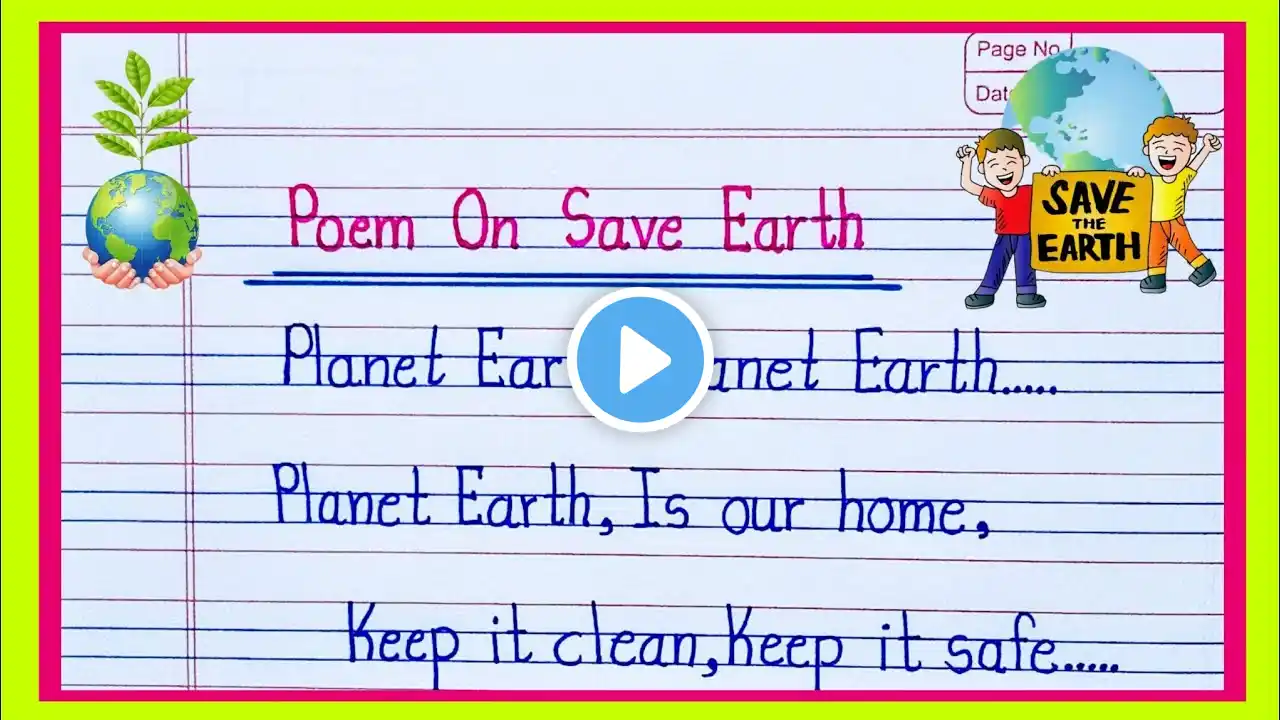 Page No
Dat
SAVE
THE
EARTH
Poem On Save Earth
Planet Ear anet Earth.....
Planet Earth, Is our home,
Keep it clean, Keep it safe.....